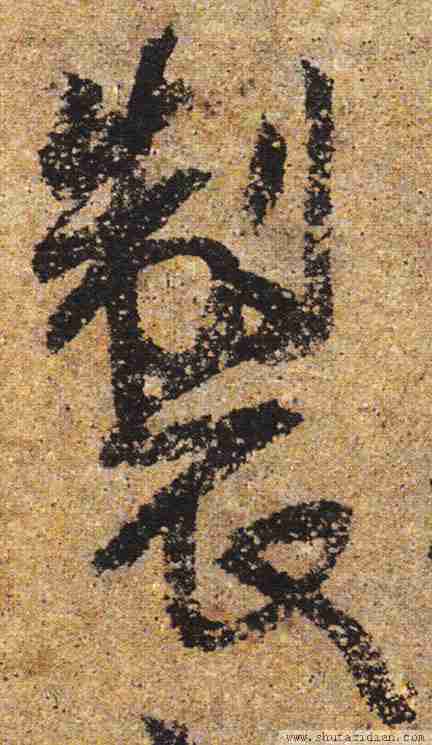 製
www.shufazidian.com